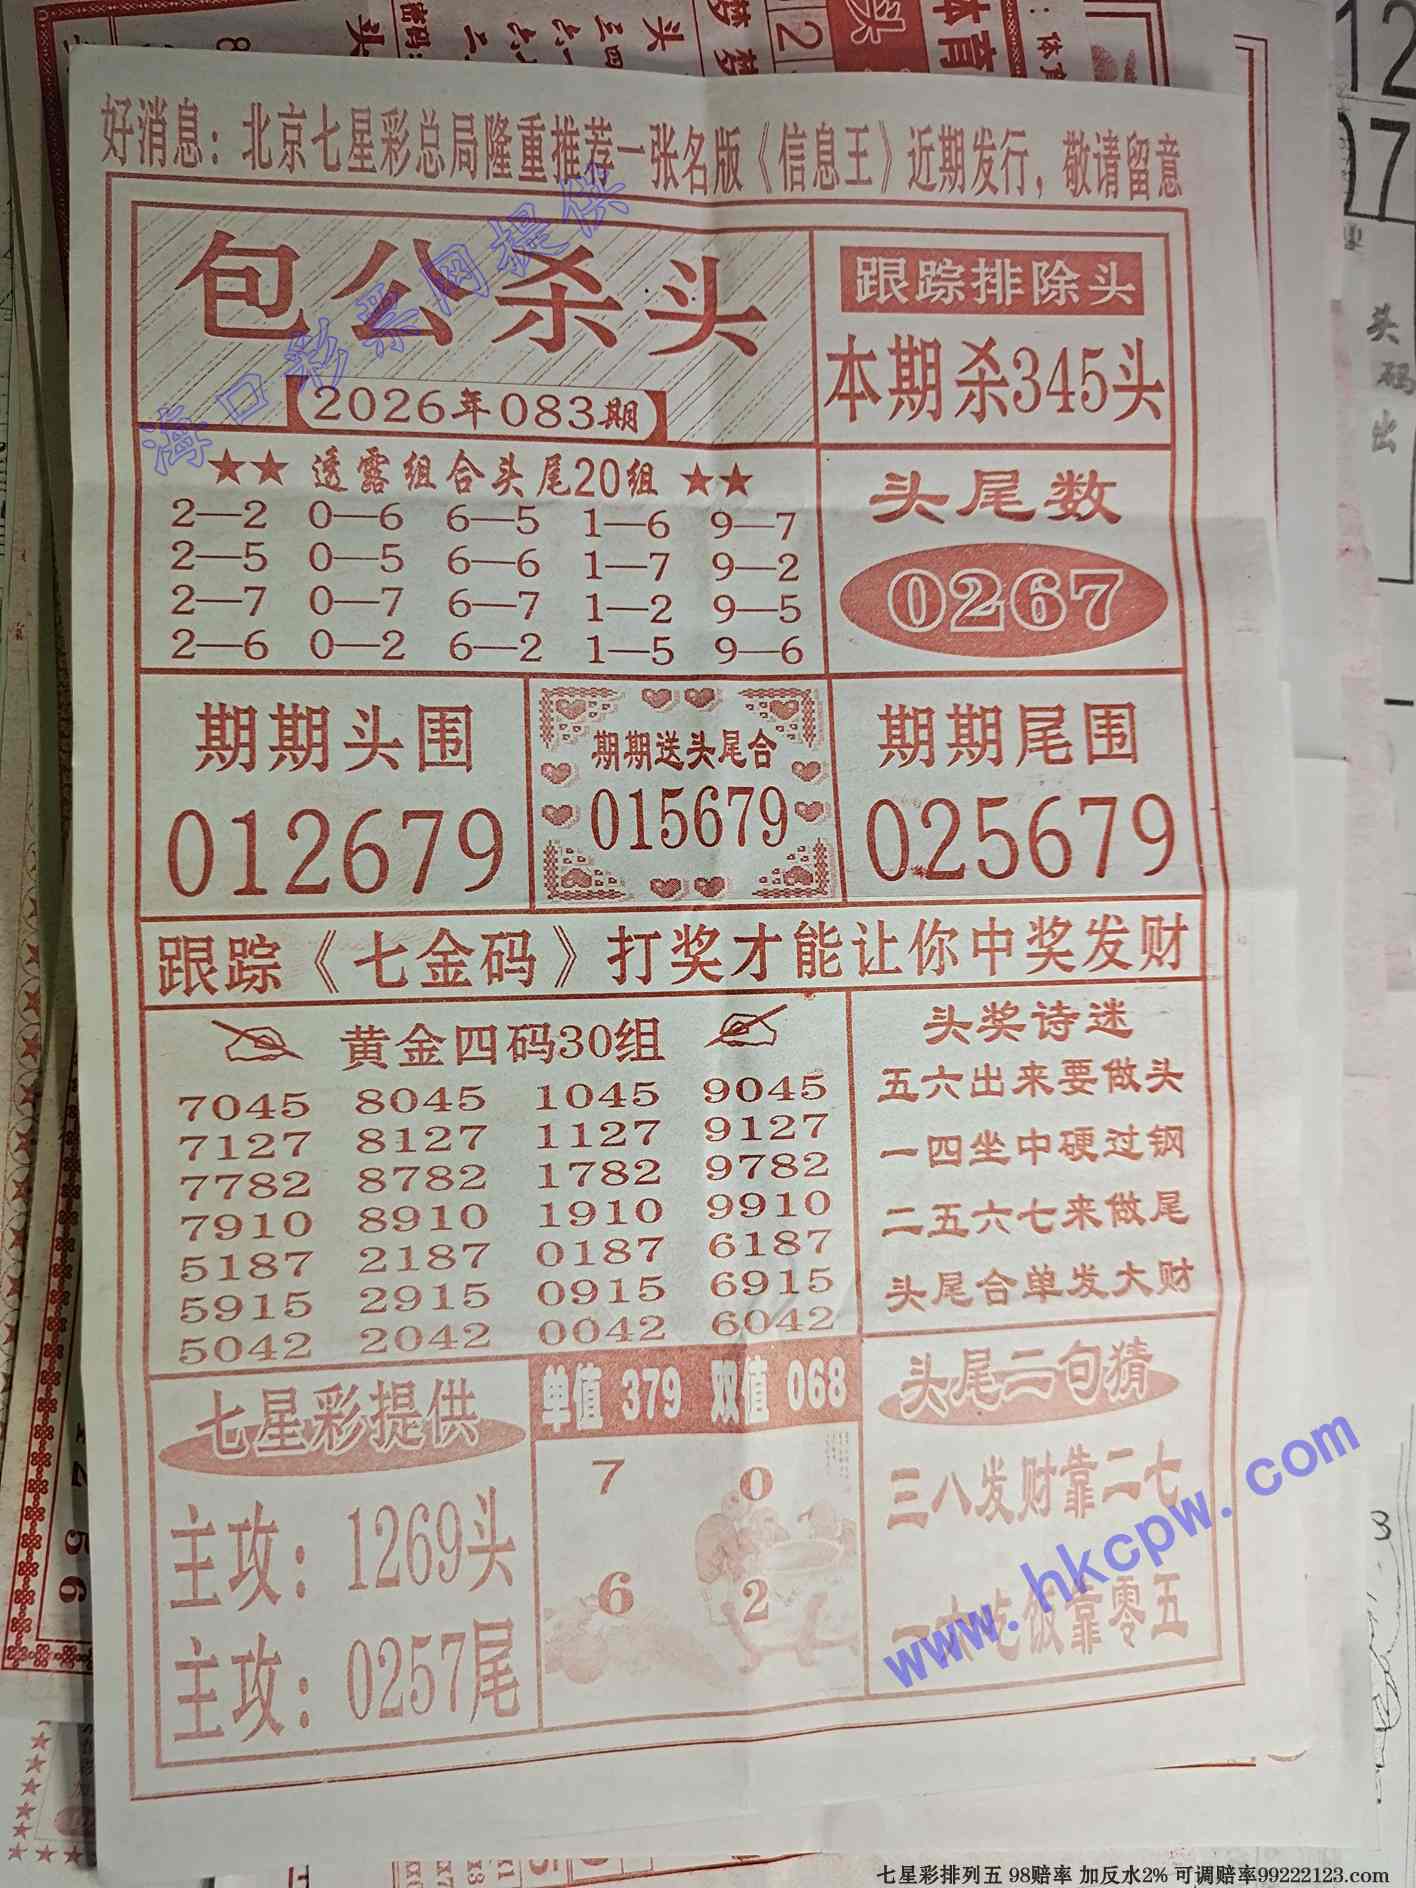 好消息：北京七星彩总局隆重推荐一张名版《信息王》近期发行，敬请留意
包公杀头
2026年083期
跟踪排除头
本期杀345头
★★ 透露组合头尾20组 ★★
2—2 0—6 6—5 1—6 9—7
2—5 0—5 6—6 1—7 9—2
2—7 0—7 6—7 1—2 9—5
2—6 0—2 6—2 1—5 9—6
头尾数
0267
期期头围
012679
期期送头尾合
015679
期期尾围
025679
跟踪《七金码》打奖才能让你中奖发财
黄金四码30组
7045 8045 1045 9045
7127 8127 1127 9127
7782 8782 1782 9782
7910 8910 1910 9910
5187 2187 0187 6187
5915 2915 0915 6915
5042 2042 0042 6042
头奖诗迷
五六出来要做头
一四坐中硬过钢
二五六七来做尾
头尾合单发大财
七星彩提供
主攻：1269头
主攻：0257尾
单值 379 双值 068
7 0
6 2
头尾二句猜
三八发财靠二七
一六吃饭靠零五
海口彩票网提供
www.hkcpw.com
七星彩排列五 98赔率 加反水2% 可调赔率99222123.com
头
码
出